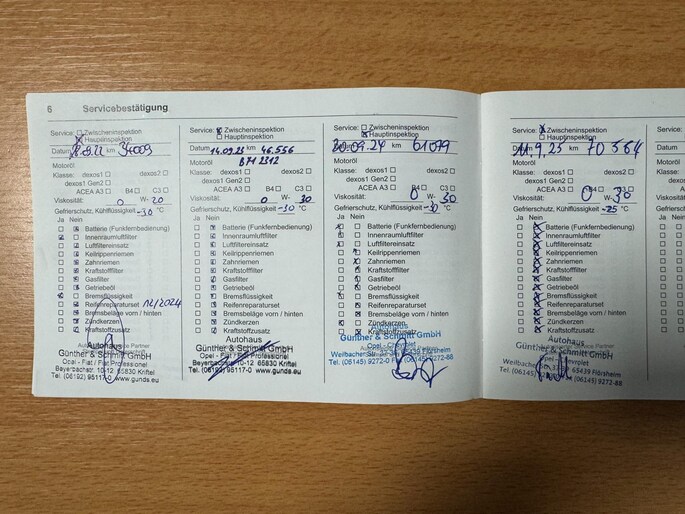 6 Servicebestätigung
Service: Zwischeninspektion
Hauptinspektion
Datum km 34009
Motoröl
Klasse: dexos1 dexos2
dexos1 Gen2
ACEA A3 B4 C3
Viskosität: 0 W- 20
Gefrierschutz, Kühlflüssigkeit -30 °C
Ja Nein
Batterie (Funkfernbedienung)
Innenraumluftfilter
Luftfiltereinsatz
Keilrippenriemen
Zahnriemen
Kraftstofffilter
Gasfilter
Getriebeöl
Bremsflüssigkeit
Reifenreparaturset 12/2024
Bremsbeläge vorn / hinten
Zündkerzen
Kraftstoffzusatz
Autohaus
Günther & Schmitt GmbH
Opel - Fiat / Fiat Professional
Bayerbachstr. 10-12 65830 Kriftel
Tel. (06192) 95117-0 www.gunds.eu
Service: Zwischeninspektion
Hauptinspektion
Datum 14.09.23 km 46.556
Motoröl B712312
Klasse: dexos1 dexos2
dexos1 Gen2
ACEA A3 B4 C3
Viskosität: 0 W- 30
Gefrierschutz, Kühlflüssigkeit -30 °C
Ja Nein
Batterie (Funkfernbedienung)
Innenraumluftfilter
Luftfiltereinsatz
Keilrippenriemen
Zahnriemen
Kraftstofffilter
Gasfilter
Getriebeöl
Bremsflüssigkeit
Reifenreparaturset
Bremsbeläge vorn / hinten
Zündkerzen
Kraftstoffzusatz
Autohaus
Günther & Schmitt GmbH
Opel - Fiat / Fiat Professionel
Beyerbachstr. 10-12 65830 Kriftel
Tel. (06192) 95117-0 www.gunds.eu
Service: Zwischeninspektion
Hauptinspektion
Datum 30.09.24 km 61099
Motoröl
Klasse: dexos1 dexos2
dexos1 Gen2
ACEA A3 B4 C3
Viskosität: 0 W- 30
Gefrierschutz, Kühlflüssigkeit -30 °C
Ja Nein
Batterie (Funkfernbedienung)
Innenraumluftfilter
Luftfiltereinsatz
Keilrippenriemen
Zahnriemen
Kraftstofffilter
Gasfilter
Getriebeöl
Bremsflüssigkeit
Reifenreparaturset
Bremsbeläge vorn / hinten
Zündkerzen
Kraftstoffzusatz
Autohaus
Günther & Schmitt GmbH
Opel - Chevrolet
Weilbacher Str. Flörsheim
Tel. (06145) 9272-0 9272-88
Service: Zwischeninspektion
Hauptinspektion
Datum 11.9.25 km 70564
Motoröl
Klasse: dexos1 dexos2
dexos1 Gen2
ACEA A3 B4 C3
Viskosität: 0 W- 30
Gefrierschutz, Kühlflüssigkeit -25 °C
Ja Nein
Batterie (Funkfernbedienung)
Innenraumluftfilter
Luftfiltereinsatz
Keilrippenriemen
Zahnriemen
Kraftstofffilter
Gasfilter
Getriebeöl
Bremsflüssigkeit
Reifenreparaturset
Bremsbeläge vorn / hinten
Zündkerzen
Kraftstoffzusatz
Autohaus
Günther & Schmitt GmbH
Opel - Chevrolet
Weilbacher 65439 Flörsheim
Tel. (06145) 9272-88